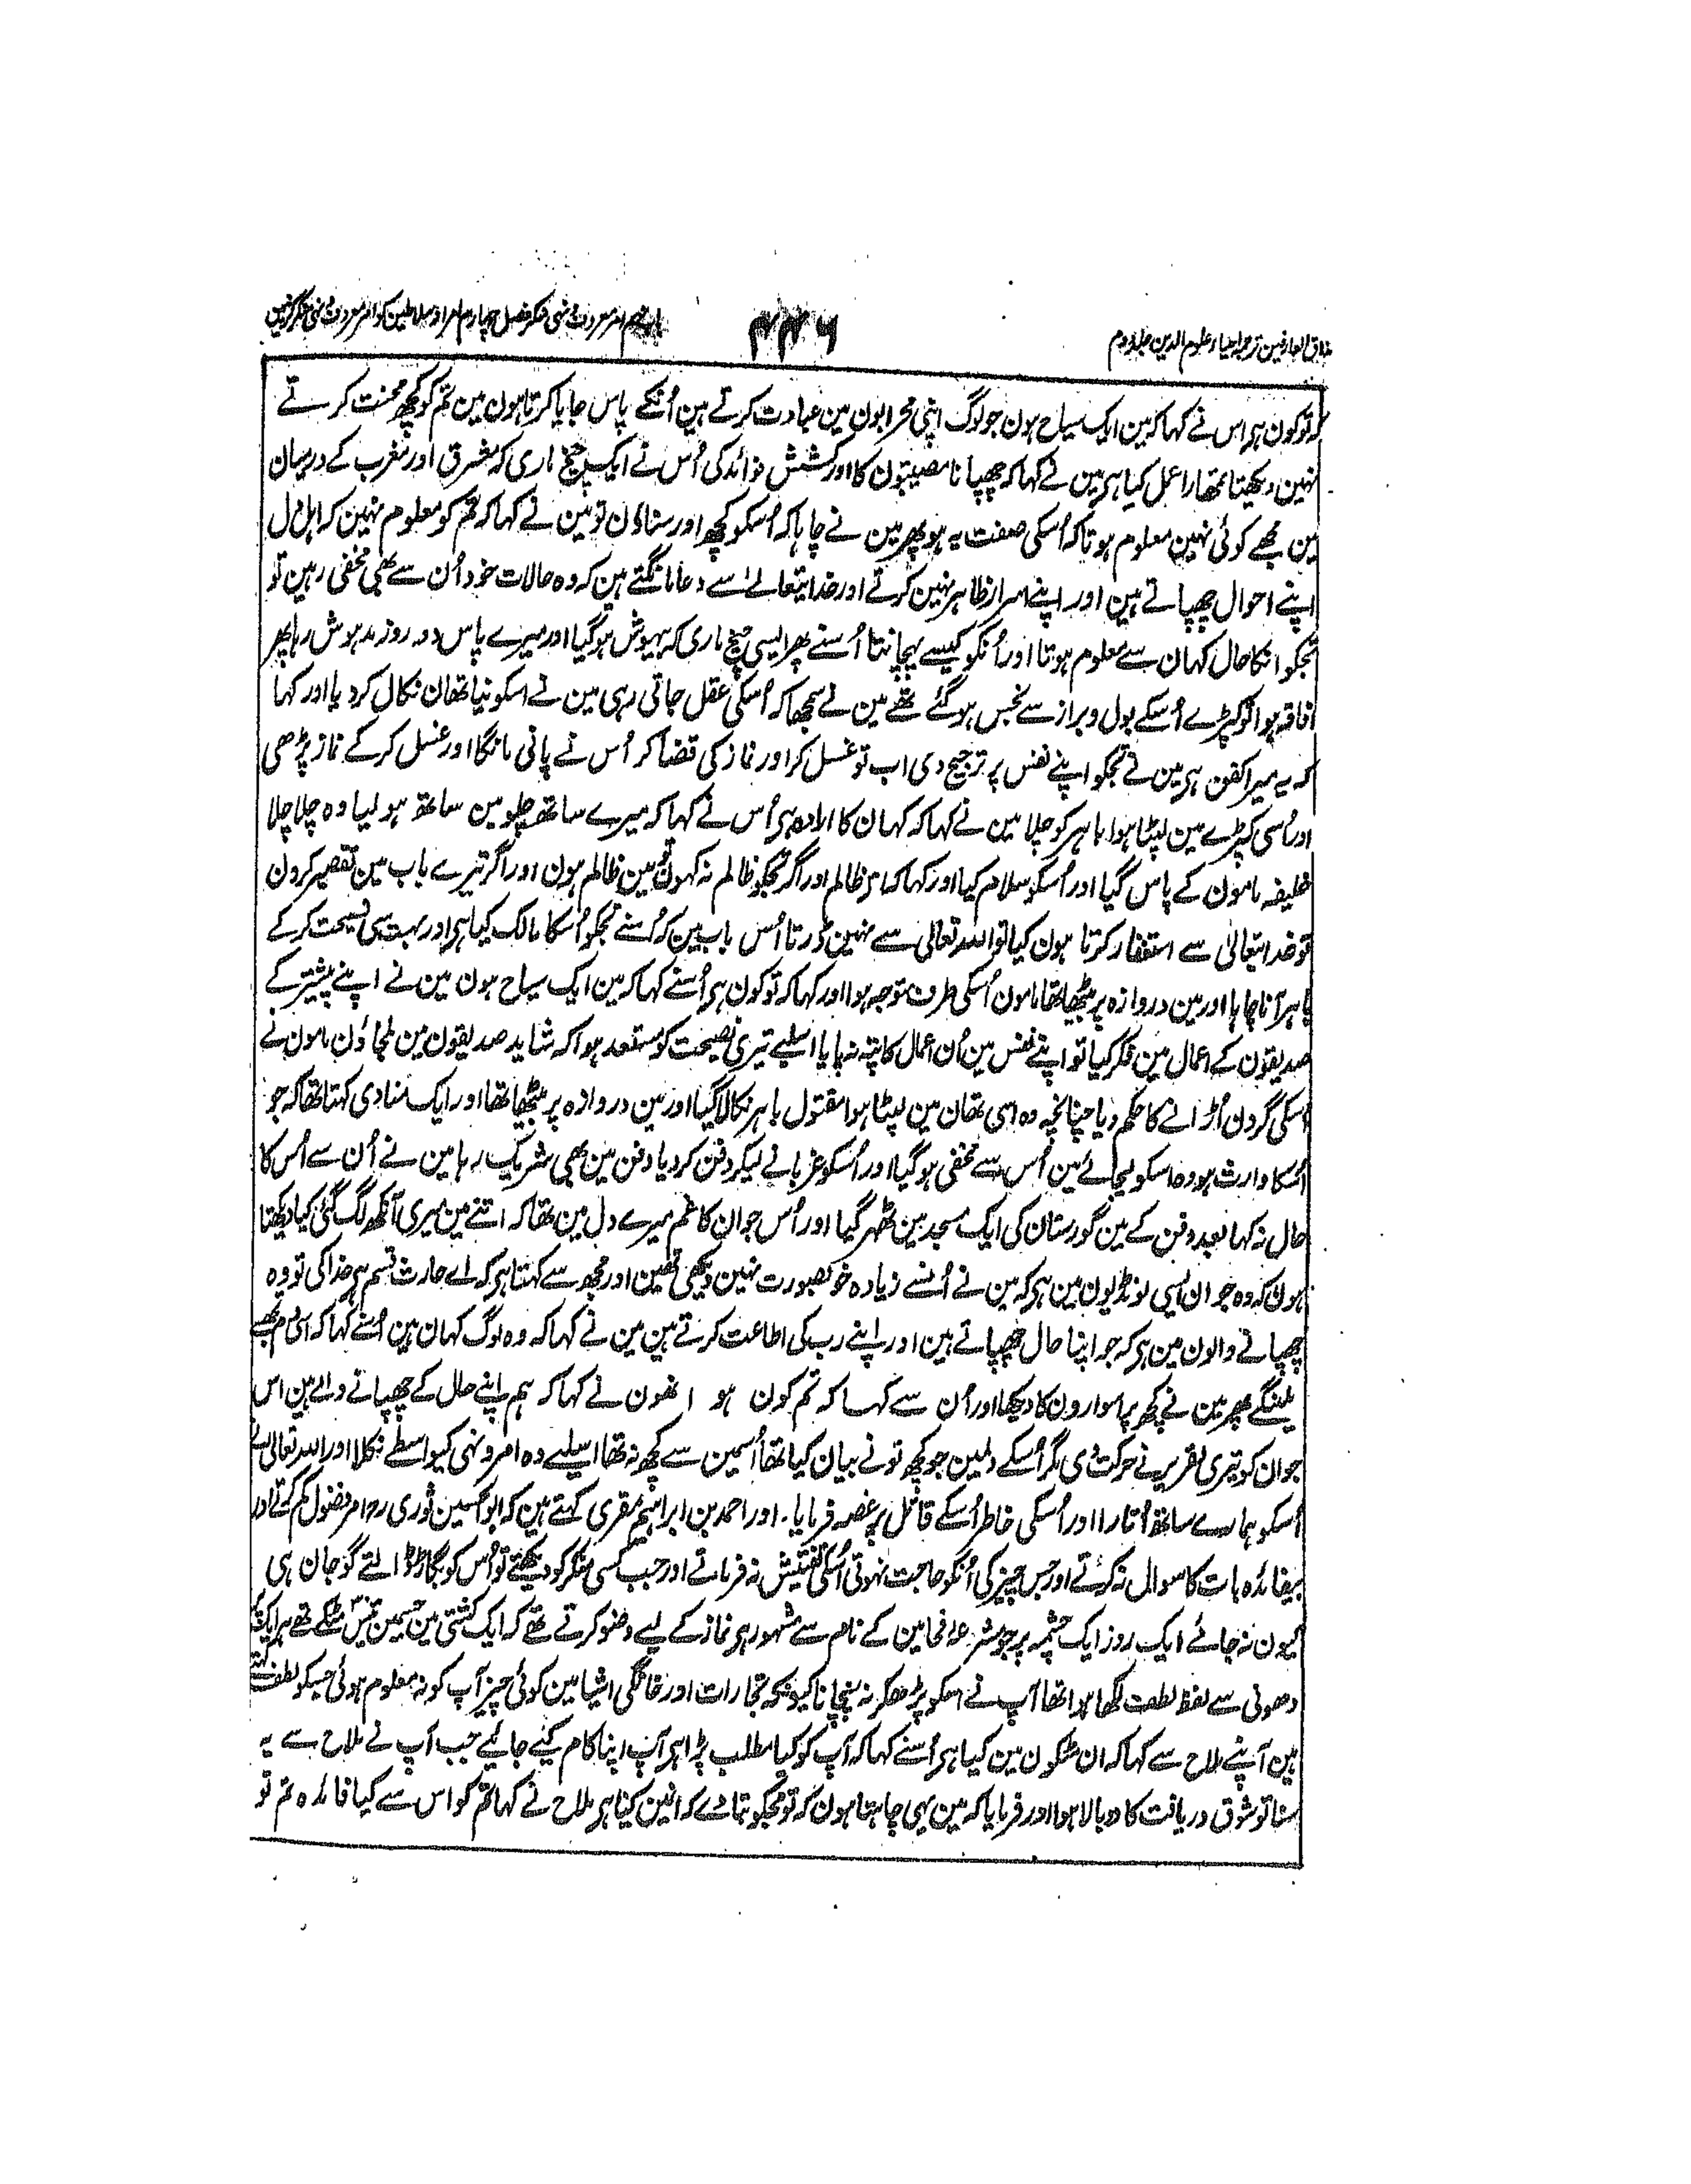 مذاق العارفین ترجمہ احیاء علوم الدین جلد دوم
۴۴۶
باب نہم امر معروف و نہی منکر فصل چہارم امرا و سلاطین کو امر معروف و نہی منکر کرنیمین
کہ تو کون ہی اس نے کہا کہ مین ایک سیاح ہون جو لوگ اپنی محرابون مین عبادت کرتے ہین اُنکے پاس جایا کرتا ہون مین تم کو کچھ محنت کرتے
نہین دیکھتا تمھارا عمل کیا ہی مین نے کہا کہ چھپانا مصیبتون کا اور کشش فوائد کی اُس نے ایک چیخ ماری کہ مشرق اور مغرب کے درمیان
مین مجھے کوئی نہین معلوم ہوتا کہ اُسکی صفت یہ ہو پھر مین نے چاہا کہ اُسکو کچھ اور سناؤن تو مین نے کہا کہ تم کو معلوم نہین کہ اہل دل
اپنے احوال چھپاتے ہین اور اپنے اسرار ظاہر نہین کرتے اور خدایتعالےٰ سے دعا مانگتے ہین کہ وہ حالات خود اُن سے بھی مخفی رہین تو
تجکو انکا حال کہان سے معلوم ہوتا اور اُنکو کیسے پہچانتا اُسنے پھر ایسی چیخ ماری کہ بیہوش ہو گیا اور میرے پاس دو روز مدہوش رہا پھر
افاقہ ہوا تو کپڑے اُسکے بول و براز سے نجس ہو گئے تھے مین نے سمجھا کہ اُسکی عقل جاتی رہی مین نے اسکو نیا تھان نکال کر دیا اور کہا
کہ یہ میرا کفن ہی مین نے تجکو اپنے نفس پر ترجیح دی اب تو غسل کر اور نماز کی قضا کر اُس نے پانی مانگا اور غسل کرکے نماز پڑھی
اور اُسی کپڑے مین لپٹا ہوا باہر کو چلا مین نے کہا کہ کہان کا ارادہ ہی اُس نے کہا کہ میرے ساتھ چلو مین ساتھ ہو لیا وہ چلا چلا
خلیفہ مامون کے پاس گیا اور اُسکو سلام کیا اور کہا کہ اے ظالم اور اگر تجکو ظالم نہ کہون تو مین ظالم ہون اور اگر تیرے باب مین تقصیر کرون
تو خدایتعالیٰ سے استغفار کرتا ہون کیا تو اللہ تعالی سے نہین ڈرتا اُس باب مین کہ اُسنے تجکو اُسکا مالک کیا ہی اور بہت سی نصیحت کرکے
باہر آنا چاہا اور مین دروازہ پر بیٹھا تھا مامون اُسکی طرف متوجہ ہوا اور کہا کہ تو کون ہی اُسنے کہا کہ مین ایک سیاح ہون مین نے اپنے پیشتر کے
صدیقون کے اعمال مین فکر کیا تو اپنے نفس مین اُن اعمال کا پتہ نہ پایا اسلیے تیری نصیحت کو مستعد ہوا کہ شاید صدیقون مین ملجاؤن مامون نے
اُسکی گردن اُڑانے کا حکم دیا چنانچہ وہ اسی تھان مین لپٹا ہوا مقتول باہر نکالا گیا اور مین دروازہ پر بیٹھا تھا اور ایک منادی کہتا تھا کہ جو
اُسکا وارث ہو وہ اسکو لیجائے مین اُس سے مخفی ہو گیا اور اُسکو غربا نے لیکر دفن کر دیا دفن مین بھی شریک رہا مین نے اُن سے اُس کا
حال نہ کہا بعد دفن کے مین گورستان کی ایک مسجد مین ٹھہر گیا اور اُس جوان کا غم میرے دل مین تھا کہ اتنے مین میری آنکھ لگ گئی کیا دیکھتا
ہون کہ وہ جوان ایسی لونڈیون مین ہی کہ مین نے اُنسے زیادہ خوبصورت نہین دیکھی تھین اور مجھ سے کہتا ہی کہ اے حارث قسم ہی خدا کی تو وہ
چھپانے والون مین ہی کہ جو اپنا حال چھپاتے ہین اور اپنے رب کی اطاعت کرتے ہین مین نے کہا کہ وہ لوگ کہان ہین اُسنے کہا کہ اسی دم تجھے
ملینگے پھر مین نے کچھ پر اسوارون کا دیکھا اور اُن سے کہا کہ تم کون ہو انھون نے کہا کہ ہم اپنے حال کے چھپانے والے ہین اس
جوان کو تیری تقریر نے حرکت دی مگر اُسکے دلمین جو کچھ تو نے بیان کیا تھا اُسمین سے کچھ نہ تھا اسلیے وہ امر و نہی کیواسطے نکلا اور اللہ تعالی نے
اُسکو ہمارے ساتھ اُتارا اور اُسکی خاطر اُسکے قاتل پر غصہ فرمایا۔ اور احمد بن ابراہیم مقری کہتے ہین کہ ابو الحسین نوری رہ امر فضول کم کرتے اور
بیفائدہ بات کا سوال نہ کرتے اور جس چیز کی اُنکو حاجت نہوتی اُسکی تفتیش نہ فرماتے اور جب کسی منکر کو دیکھتے تو اُس کو بگاڑ ڈالتے گو جان ہی
کیون نہ جائے ایک روز ایک چشمہ پر جو مشرعۂ فحامین کے نام سے مشہور ہی نماز کے لیے وضو کرتے تھے کہ ایک کشتی مین جسمین تیس مٹکے تھے ہر ایک پر
دھونی سے لفظ لطف لکھا ہوا تھا آپ نے اسکو پڑھکر نہ پہچانا کیونکہ تجارات اور خانگی اشیا مین کوئی چیز آپ کو نہ معلوم ہوئی جسکو لطف کہتے
ہین آپنے ملاح سے کہا کہ ان مٹکون مین کیا ہی اُسنے کہا کہ آپ کو کیا مطلب پڑا ہی آپ اپنا کام کیے جائیے جب آپ نے ملاح سے یہ
سنا تو شوق دریافت کا دوبالا ہوا اور فرمایا کہ مین یہی چاہتا ہون کہ تو مجکو بتا دے کہ انمین کیا ہی ملاح نے کہا تم کو اس سے کیا فائدہ تم تو